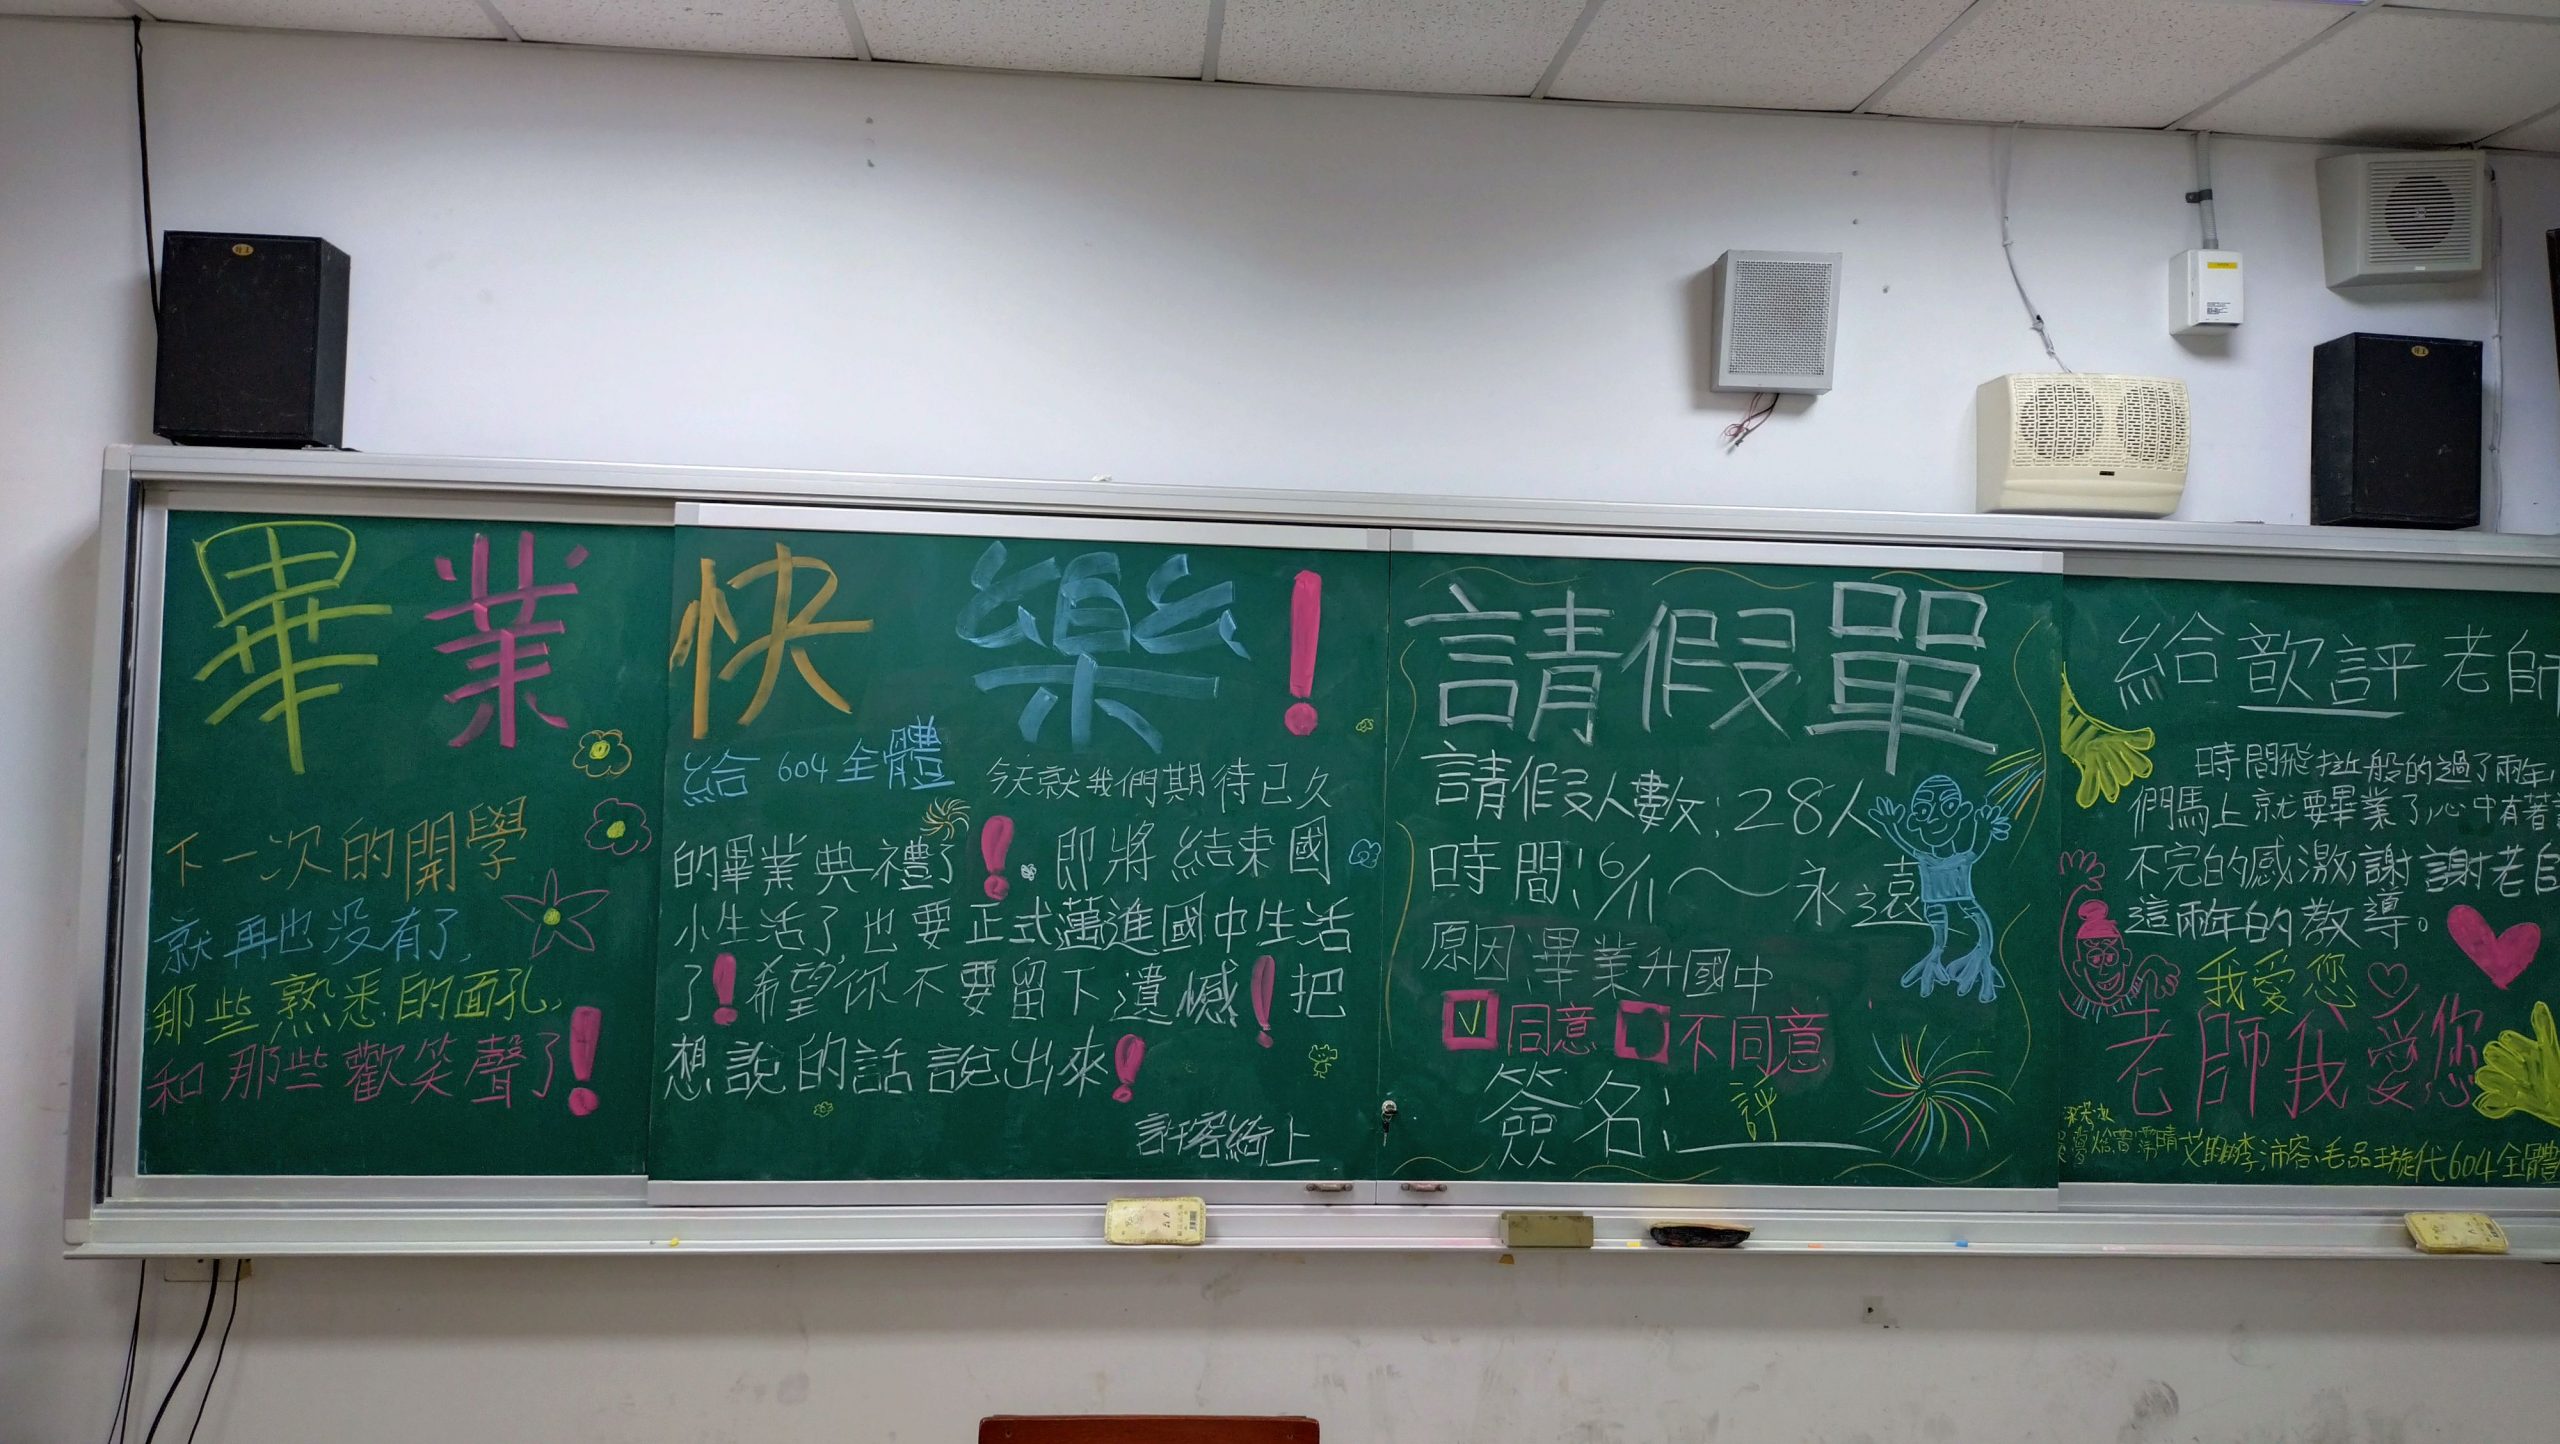 畢業快樂!
下一次的開學
就再也沒有了,
那些熟悉的面孔,
和那些歡笑聲了!
給604全體
今天就我們期待已久
的畢業典禮了!即將結束國
小生活了,也要正式邁進國中生活
了!希望你不要留下遺憾!把
想說的話說出來!
許容綺上
請假單
請假人數:28人
時間:6/11~永遠
原因畢業升國中
☑同意 □不同意
簽名:評
給歆評老師
時間飛 般的過了兩年,
們馬上就要畢業了,心中有著
不完的感激,謝謝老師
這兩年的教導。
我愛您♡
老師我愛您
李沛容、毛品璇代604全體